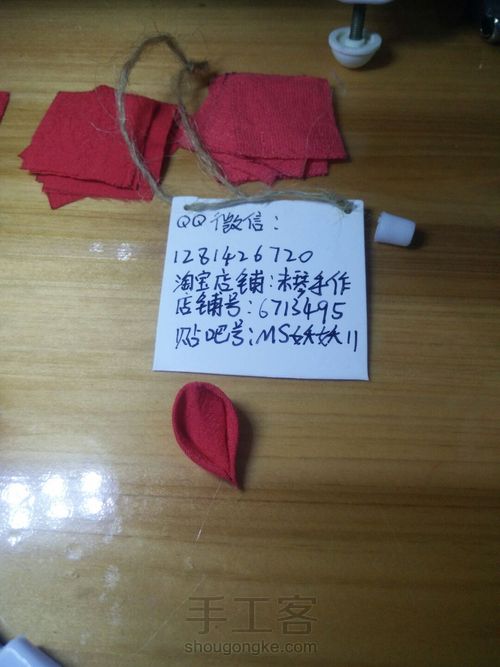 QQ微信：
1281426720
淘宝店铺：未琴手作
店铺号：6713495
贴吧号：MS妖妖11
手工客
shougongke.com